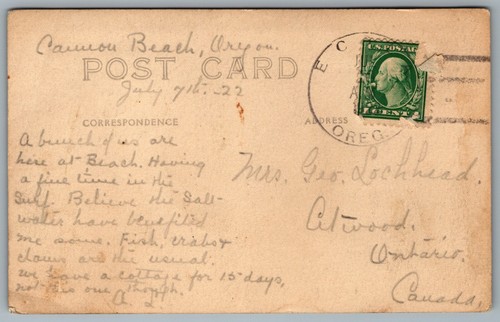 Cannon Beach, Oregon.
POST CARD
July 7th - 22
CORRESPONDENCE
ADDRESS
U.S. POSTAG
CENT
E C
OREG.
A bunch of us are
here at Beach. Having
a fine time in the
Surf. Believe the Salt-
water have benefited
me some. Fish, crabs &
clams are the usual.
we have a cottage for 15 days,
not this one though.
Mrs. Geo. Lochhead.
Atwood.
Ontario.
Canada.